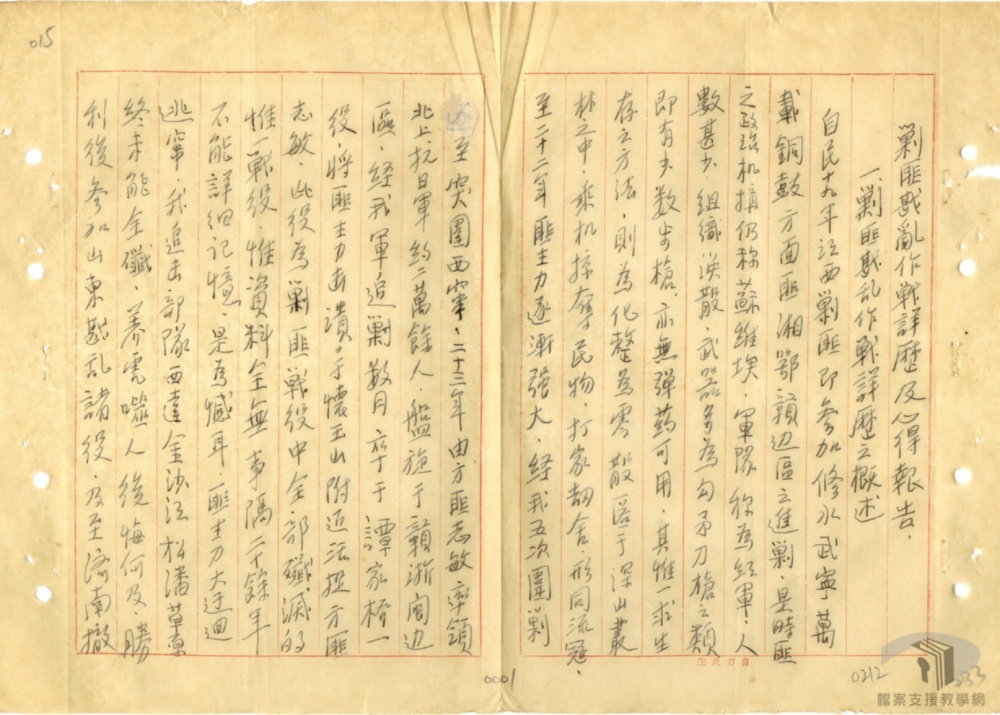 015
剿匪戡亂作戰詳歷及心得報告.
一、剿匪戡乱作戰詳歷之概述
自民十九年江西剿匪即參加修水武寧萬
載銅鼓方面匪湘鄂贛边區之進剿.是時匪
之政治机搆仍称蘇維埃.軍隊称為紅軍.人
數甚少.組織渙散.武器多為勾矛刀槍之類
即有少数步槍.亦無彈葯可用.其惟一求生
存之方法.則為化整為零散匿于深山叢
林之中.乘机掠奪民物.打家劫舍.形同流寇.
至二十二年匪主力逐漸强大.経我五次圍剿
至突圍西竄.二十三年由方匪志敏率領
北上抗日軍約二萬餘人.盤旋于贛浙閩边
區.経我軍追剿数月卒于譚家橋一
役.將匪主力击潰.于懷玉山附近活捉方匪
志敏.此役為剿匪戰役中全部殲滅的
惟一戰役.惟資料全無事隔二十餘年
不能詳細记憶.是為憾耳.匪主力大迂迴
逃竄.我追击部隊西達金沙江松潘草原
終未能全殲.养虎噬人後悔何及.勝
利後參加山東戡乱諸役.及至濟南撤
0001
0212
檔案支援教學網